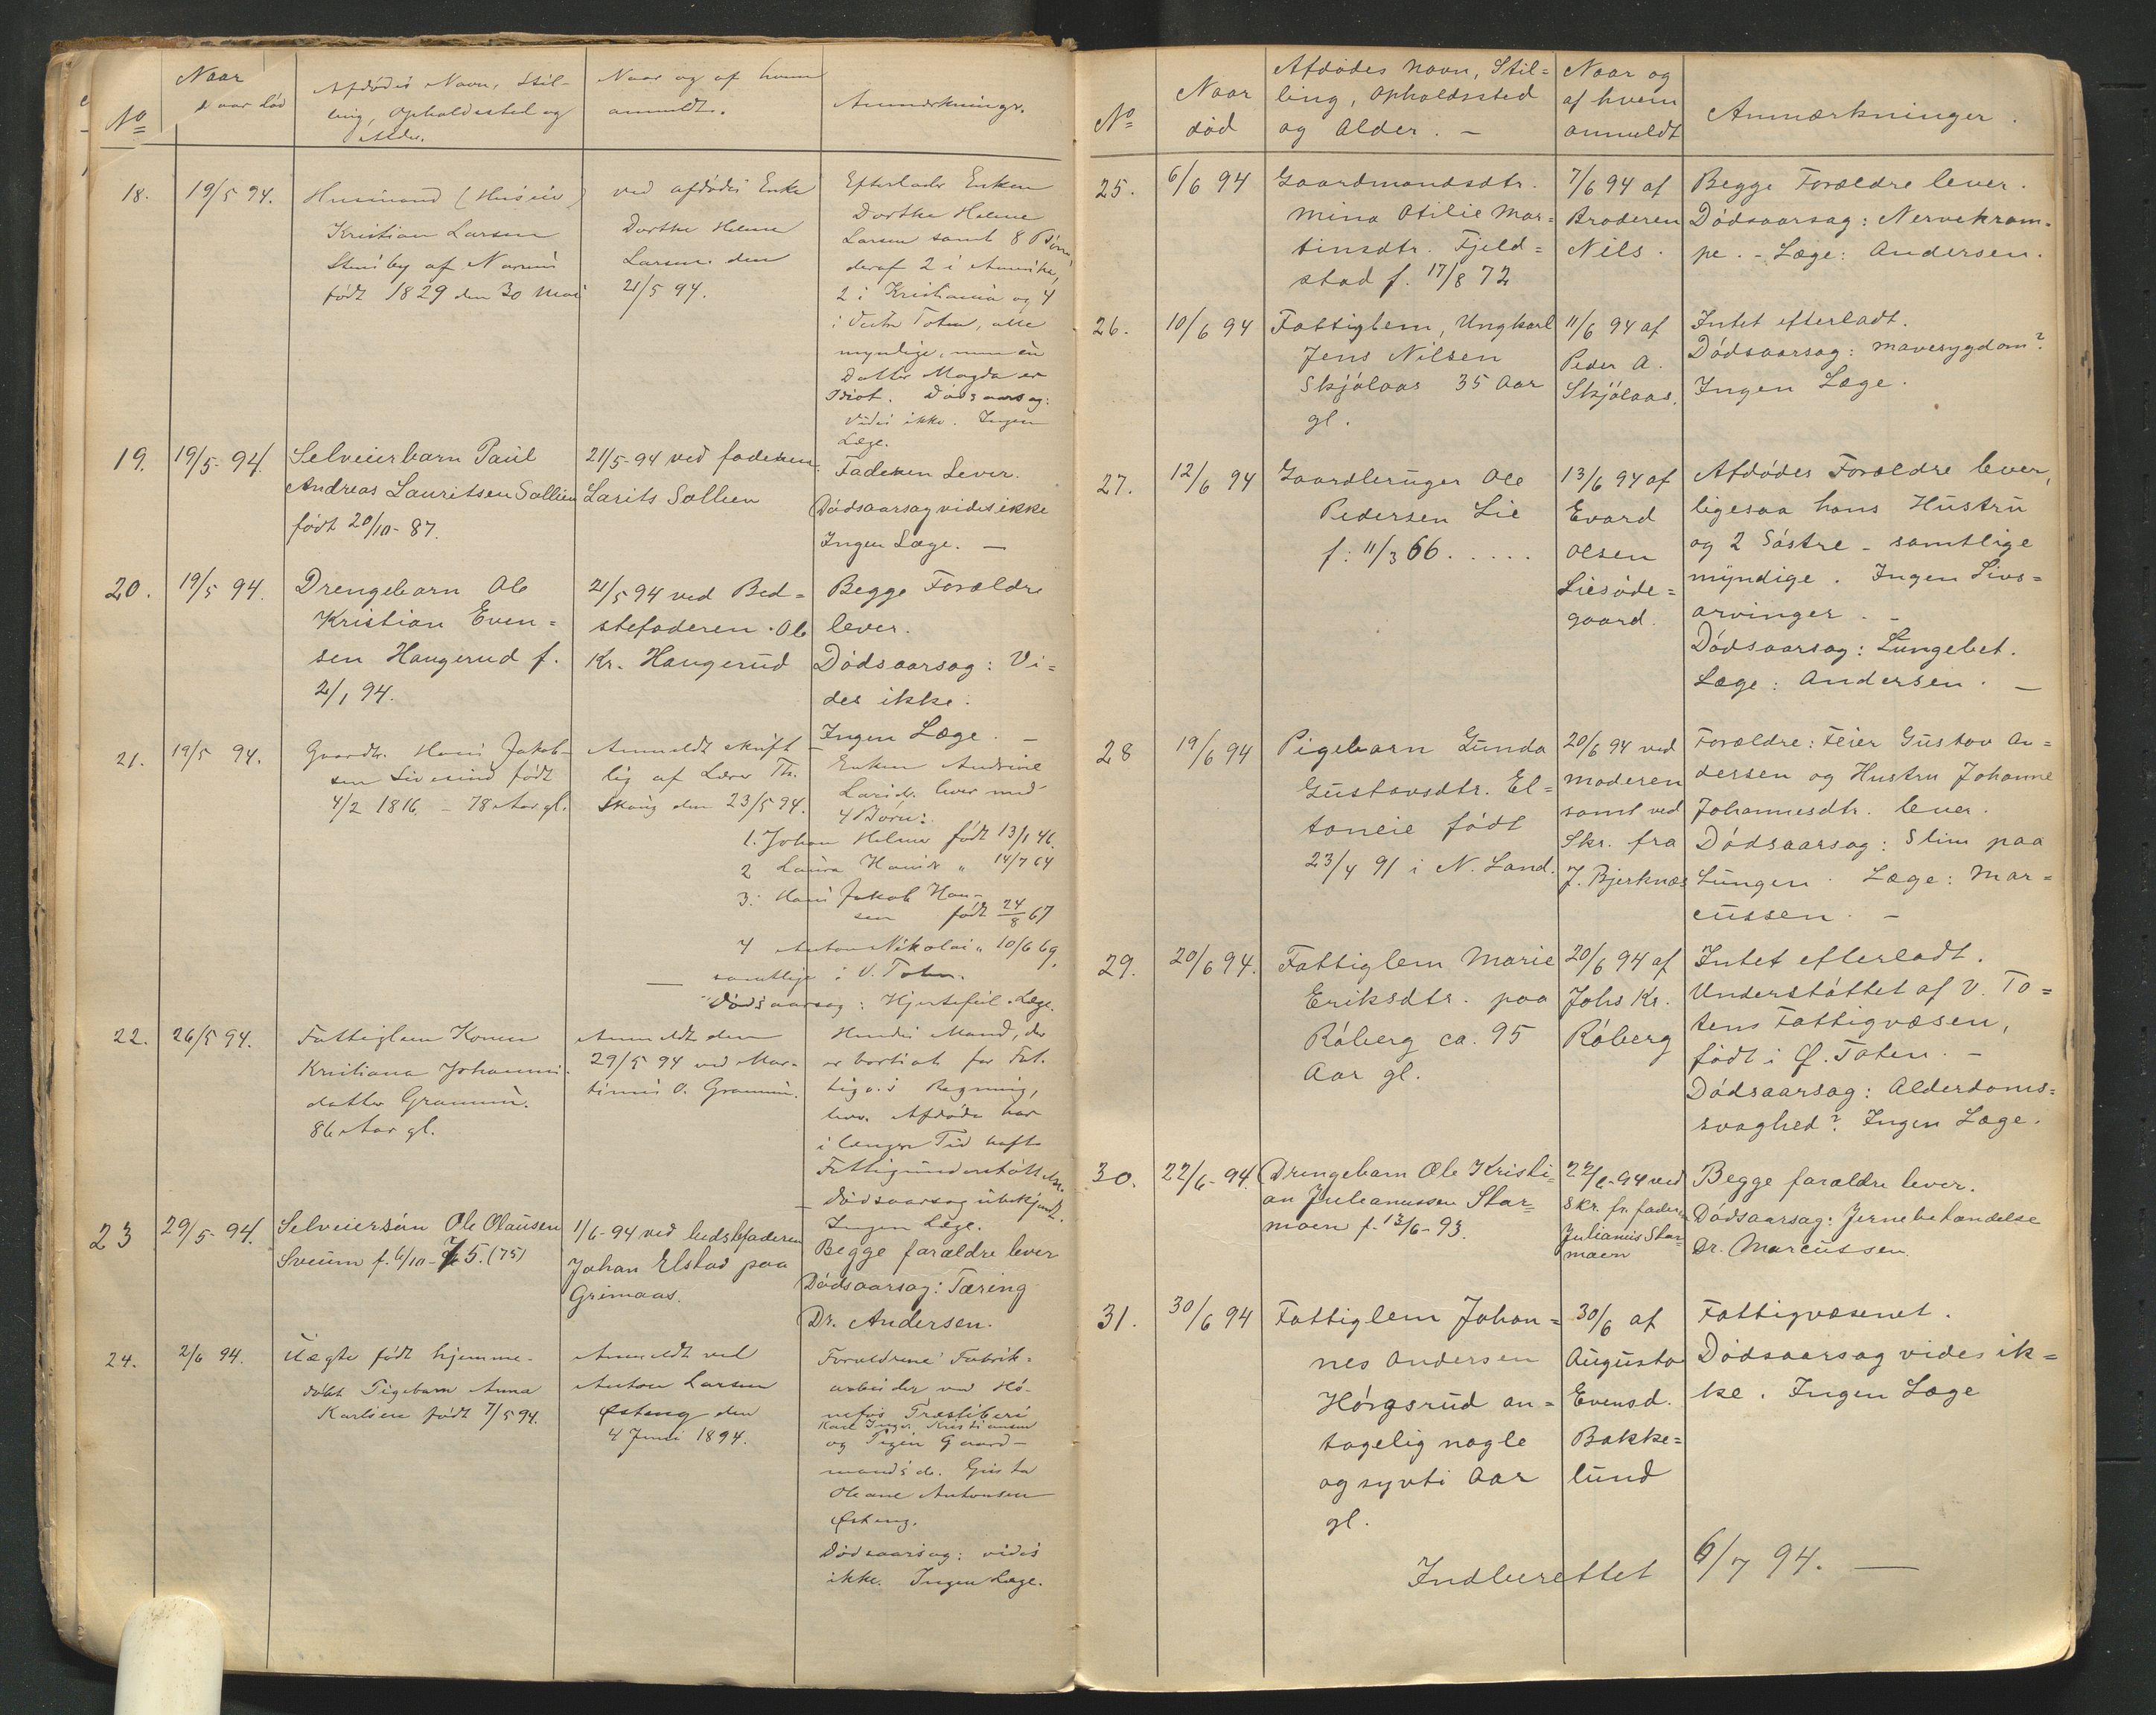 No
Naar
død
Afdødes Navn, Stil-
ling, Opholdssted og
Alder.
Naar og af hvem
anmeldt.
Anmærkninger.
18.
19/5 94.
Husmand (Huseier)
Kristian Larsen
Stensby af
født 1829 den 30 Mai
ved afdødes Enke
Dorthe Helene
Larsen den
21/5 94.
Efterlader Enken
Dorthe Helene
Larsen samt 8 Børn,
deraf 2 i Amerika,
2 i Kristiania og 4
i Vestre Toten, alle
myndige, men en
Datter Magda er
Idiot. Dødsaarsag:
vides ikke. Ingen
Læge.
19.
19/5- 94.
Selveierbarn Paul
Andreas Lauritsen Sollien
født 20/10-87.
21/5-94 ved faderen
Larits Sollien
Faderen Lever.
Dødsaarsag vides ikke
Ingen Læge. —
20.
19/5 94.
Drengebarn Ole
Kristian Even=
sen Haugerud f.
2/1 94.
21/5 94 ved Bed=
stefaderen Ole
Kr. Haugerud
Begge Forældre
lever.
Dødsaarsag: Vi=
des ikke.
Ingen Læge. —
21.
19/5 94.
Gaardbr. Hans Jakob-
sen født
4/2 1816 - 78 Aar gl.
Anmeldt skrift
lig af Lærer Th.
Skaug den 23/5 94.
Enken Andrine
Larsdr. lever med
4 Børn:
1. Johan Helmer født 13/1 46.
2 Laura Hansdr " 14/7 64
3. Hans Jakob Han-
sen født 24/8 67
4 Anton Nikolai " 10/6 69,
samtlige i V. Toten.
Dødsaarsag: Hjertefeil. Læge.
22.
26/5 94.
Fattiglem Konen
Kristiana Johannes-
datter
86 Aar gl.
Anmeldt den
29/5 94 ved Mar-
tinus O.
Hendes Mand, der
er bortsat for Fat-
tigv.s Regning,
lever. Afdøde har
i længre Tid havt
Fattigunderstøttelse.
Dødsaarsag ubekjendt.
Ingen Læge.
23
29/5- 94.
Selveiersøn Ole Olausen
Sveum f. 6/10-75. (75)
1/6-94 ved bedstefaderen
Johan Elstad paa
Grimaas.
Begge forældre lever
Dødsaarsag: Tæring
Dr. Andersen.
24.
2/6 94.
Uægte født hjemme-
døbt Pigebarn Anna
Karlsen født 7/5 94.
Anmeldt ved
Anton Larsen
Østeng den
4 Juni 1894.
Forældrene: Fabrik-
arbeider ved Hø-
nefos Træsliberi
Karl Inge. Kristiansen
og Pigen Gaard-
mandsdr. Gusta
Oleane Antonsen
Østeng.
Dødsaarsag: vides
ikke. Ingen Læge.
No
Naar
død
Afdødes Navn, Stil=
ling, Opholdssted
og Alder. —
Naar og
af hvem
anmeldt
Anmærkninger.
25.
6/6 94
Gaardmandsdtr.
Mina Otilie Mar=
tinsdtr. Fjeld=
stad f. 17/8 72
7/6 94 af
Broderen
Nils.
Begge Forældre lever.
Dødsaarsag: Nervekram-
pe. - Læge: Andersen.
26.
10/6 94
Fattiglem, Ungkarl
Jens Nilsen
Skjølaas 35 Aar
gl.
11/6 94 af
Peder A.
Skjølaas.
Intet efterladt.
Dødsaarsag: Mavesygdom?
Ingen Læge.
27.
12/6 94
Gaardbruger Ole
Pedersen Lie
f. 11/3 66.....
13/6 94 af
Evard
Olsen
Liesøde=
gaard.
Afdødes Forældre lever,
ligesaa hans Hustru
og 2 Søstre - samtlige
myndige. Ingen Livs=
arvinger. -
Dødsaarsag: Lungebet.
Læge: Andersen. —
28
19/6 94
Pigebarn Gunda
Gustavsdtr. El=
toneie født
23/4 91 i N. Land.
20/6 94 ved
Moderen
samt ved
Skr. fra
J. Bjerknæs
Forældre: Feier Gustav An=
dersen og Hustru Johanne
Johannesdtr. lever.
Dødsaarsag: Slim paa
Lungen. Læge: Mar=
cussen. —
29.
20/6 94.
Fattiglem Marie
Eriksdtr. paa
Røberg ca. 95
Aar gl.
20/6 94 af
Johs Kr.
Røberg
Intet efterladt.
Understøttet af V. To=
tens Fattigvæsen,
født i Ø. Toten. —
Dødsaarsag: Alderdoms=
svaghed? Ingen Læge.
30.
22/6- 94.
Drengebarn Ole Kristi=
an Julianussen Star=
moen f. 13/6-93.
22/6-94 ved
Skr. fr. faderen
Julianus Star=
moen
Begge forældre lever.
Dødsaarsag: Jernebetændelse
Dr. Marcussen.
31.
30/6 94
Fattiglem Johan=
nes Andersen
Hørgsrud an=
tagelig nogle
og sytti Aar
gl.
30/6 af
Augusta
Evensd.
Bakke=
lund
Fattigvæsenet.
Dødsaarsag vides ik=
ke. Ingen Læge
Indberettet 6/7 94. —